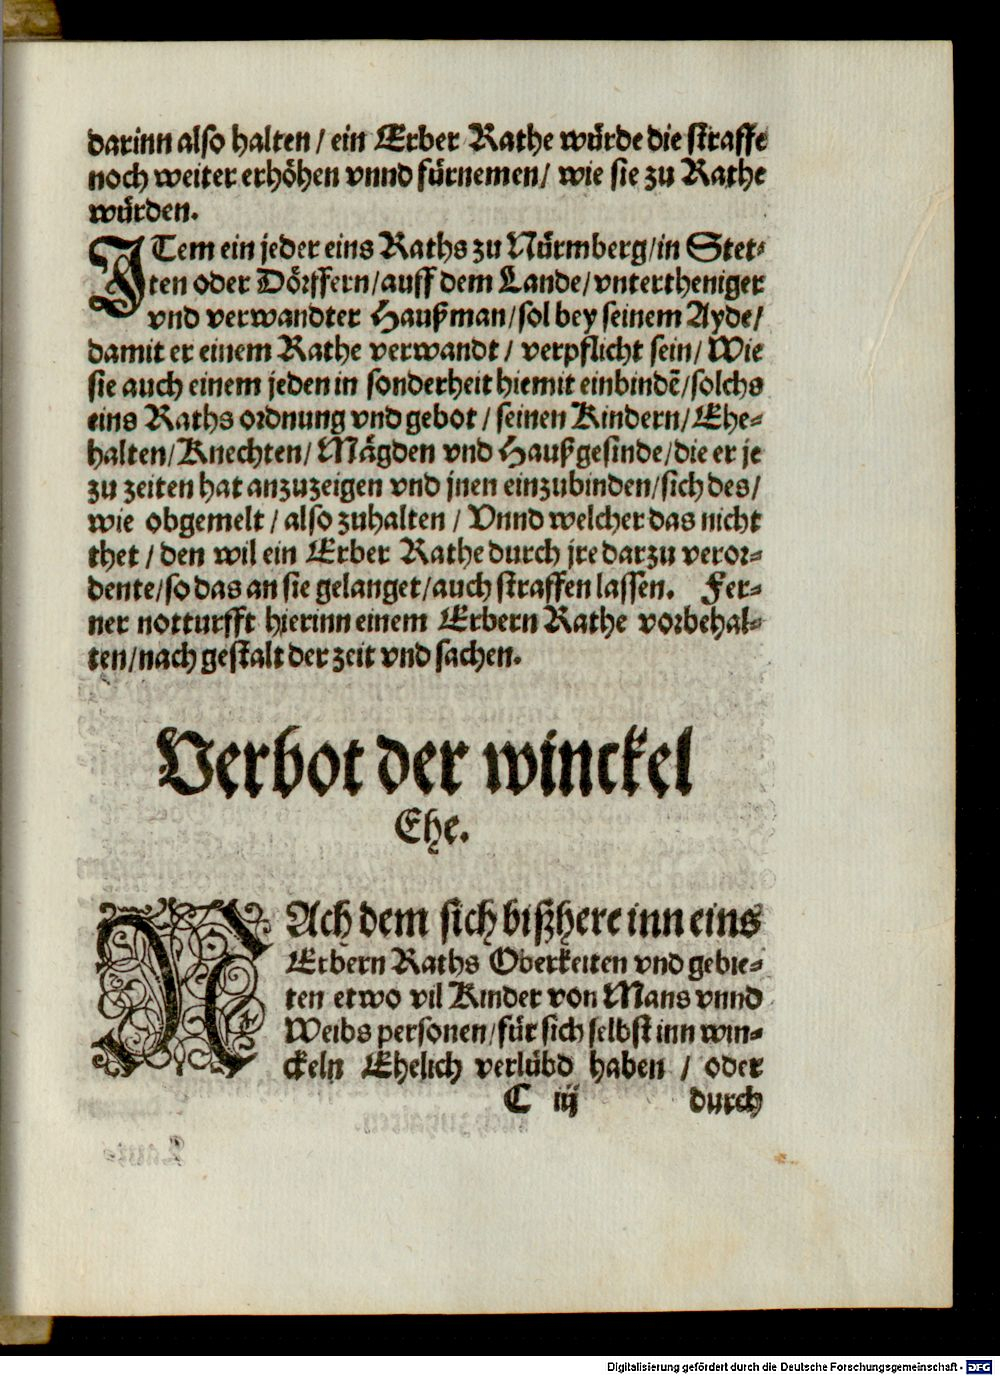 darinn also halten / ein Erber Rathe würde die straffe
noch weiter erhöhen vnnd fürnemen / wie sie zu Rathe
würden.
ITem ein jeder eins Raths zu Nürmberg / in Stet-
ten oder Dörffern / auff dem Lande / vntertheniger
vnd verwandter Haußman / sol bey seinem Ayde /
damit er einem Rathe verwandt / verpflicht sein / Wie
sie auch einem jeden in sonderheit hiemit einbindē / solchs
eins Raths ordnung vnd gebot / seinen Kindern / Ehe-
halten / Knechten / Mägden vnd Haußgesinde / die er je
zu zeiten hat anzuzeigen vnd jnen einzubinden / sich des /
wie obgemelt / also zuhalten / Vnnd welcher das nicht
thet / den wil ein Erber Rathe durch jre darzu veror-
dente / so das an sie gelanget / auch straffen lassen. Fer-
ner notturfft hierinn einem Erbern Rathe vorbehal-
ten / nach gestalt der zeit vnd sachen.
Verbot der winckel
Ehe.
NAch dem sich bißhere inn eins
Erbern Raths Oberkeiten vnd gebie-
ten etwo vil Kinder von Mans vnnd
Weibs personen / für sich selbst inn win-
ckeln Ehelich verlübd haben / oder
C iij durch
Digitalisierung gefördert durch die Deutsche Forschungsgemeinschaft - DFG